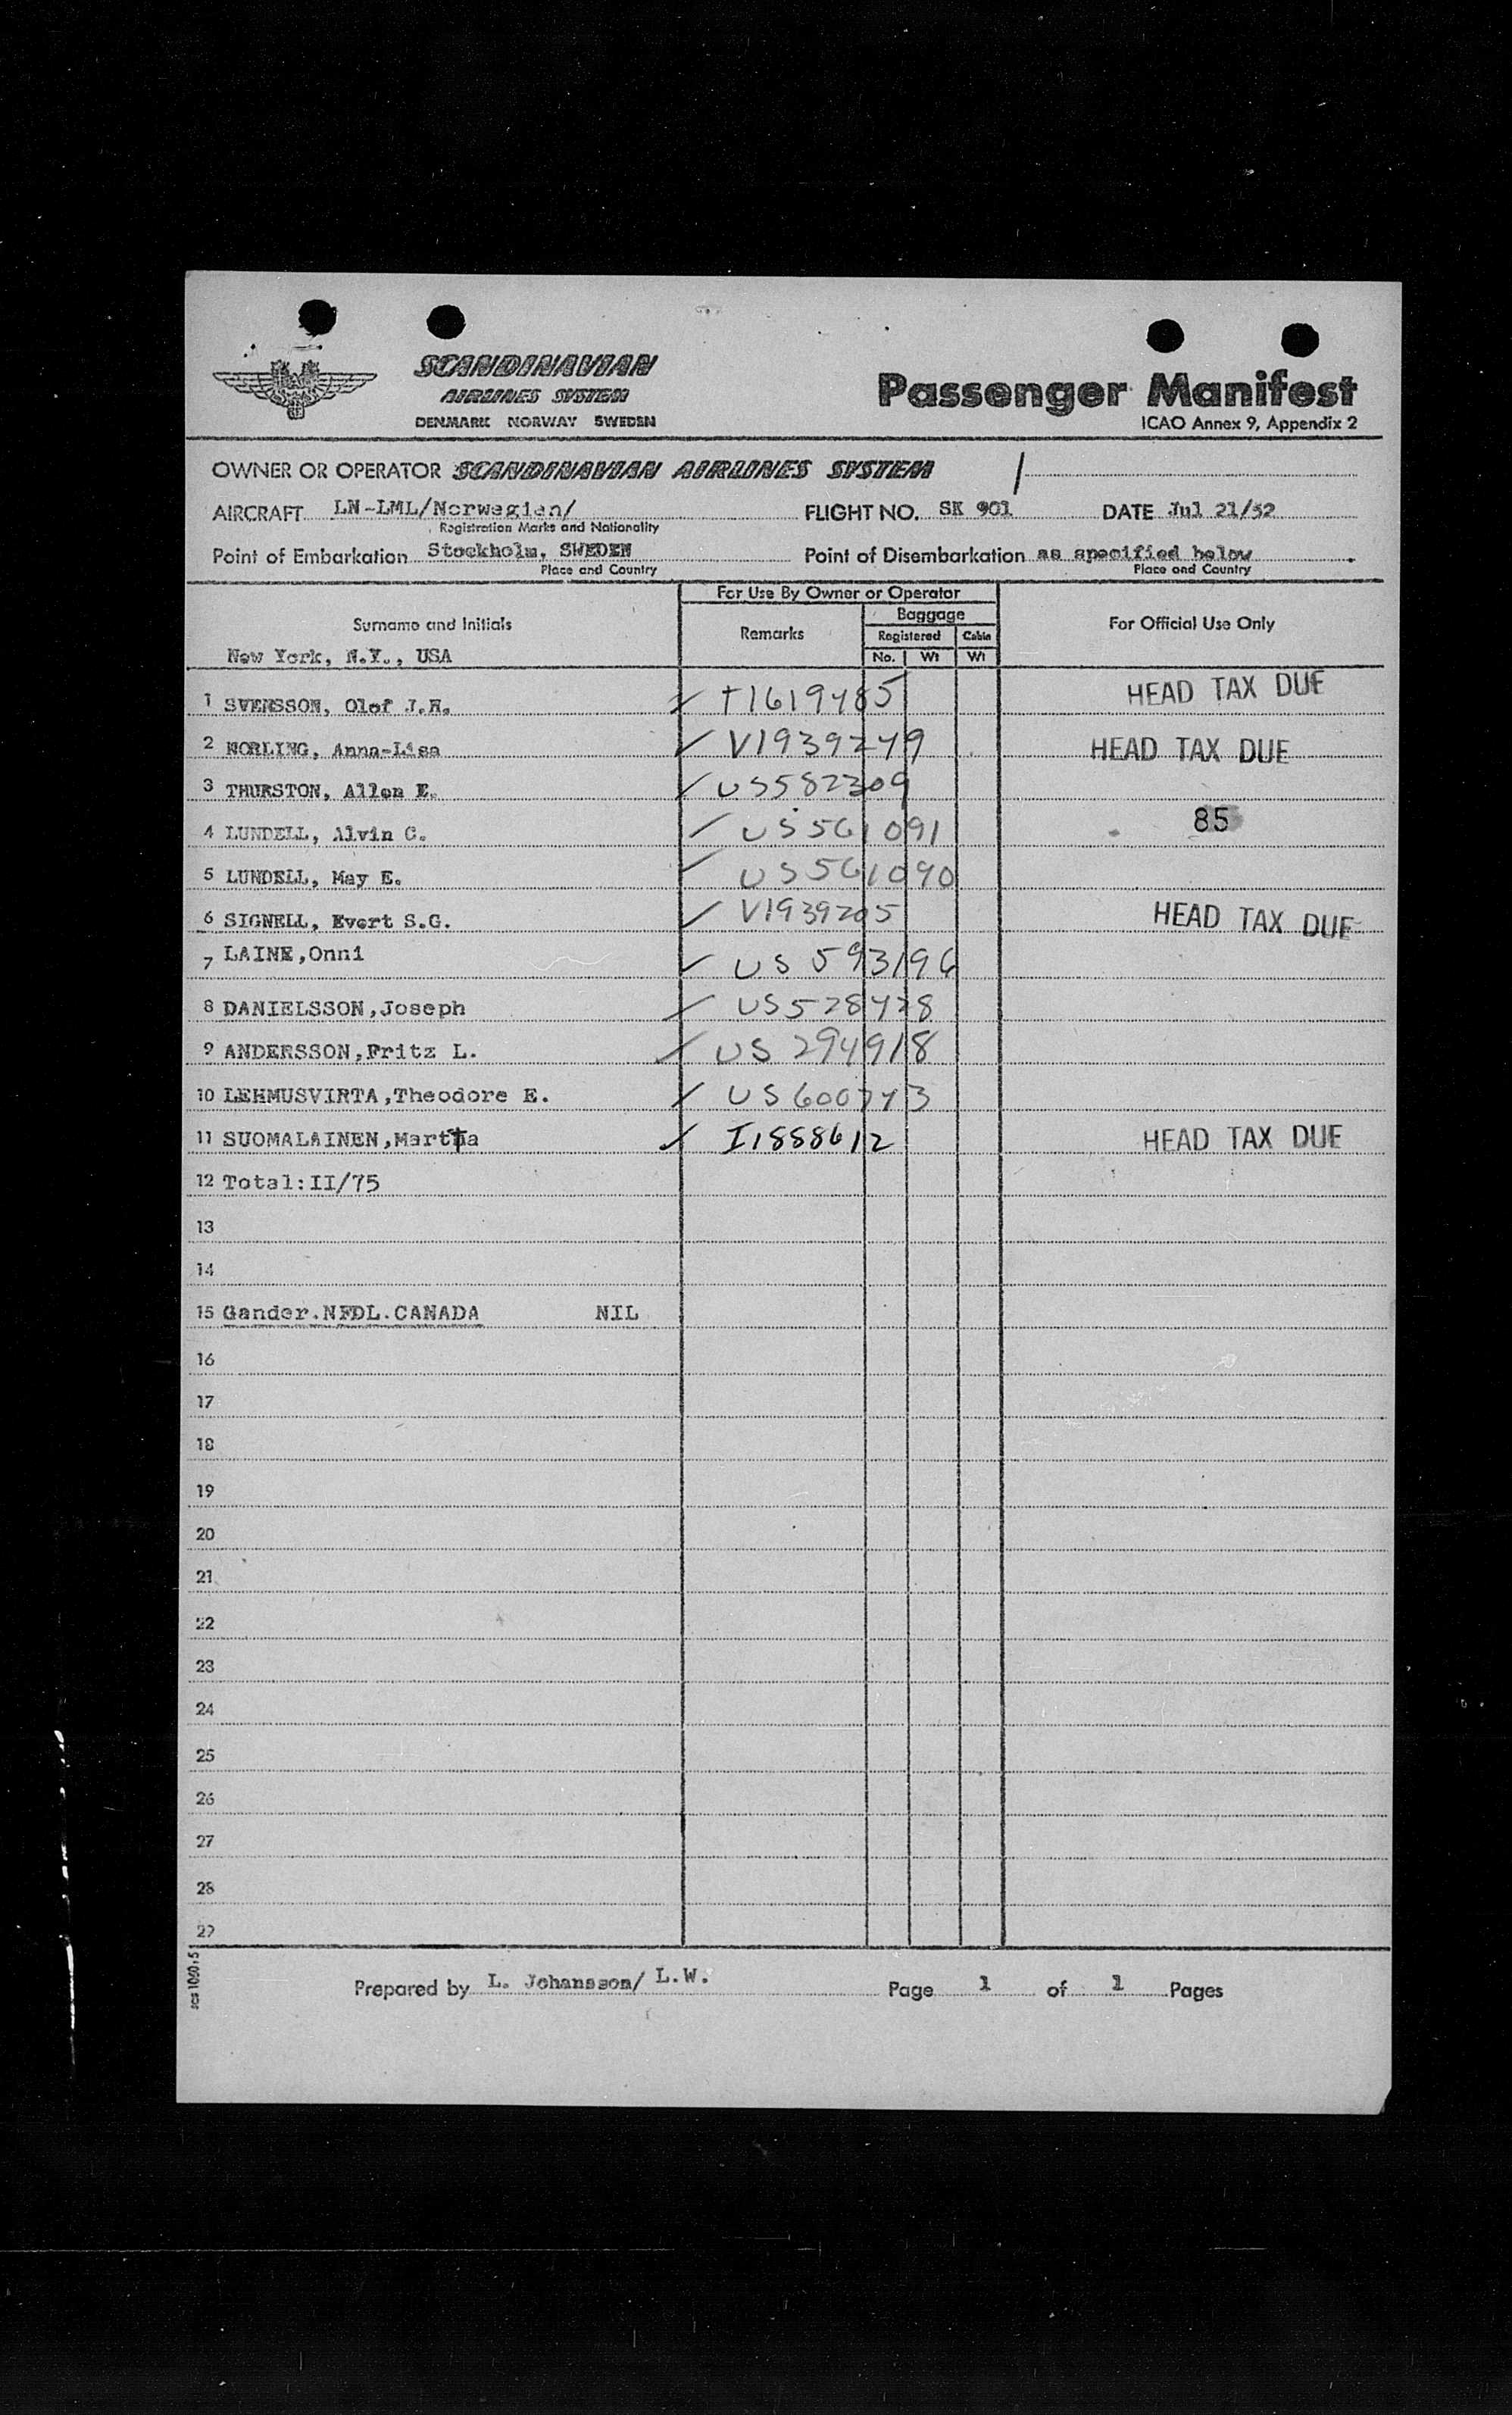 SCANDINAVIAN
AIRLINES SYSTEM
DENMARK NORWAY SWEDEN
Passenger Manifest
ICAO Annex 9, Appendix 2
OWNER OR OPERATOR SCANDINAVIAN AIRLINES SYSTEM
AIRCRAFT LN-LML/Norwegian/ FLIGHT NO. SK 901 DATE Jul 21/52
Registration Marks and Nationality
Point of Embarkation Stockholm, SWEDEN Point of Disembarkation as specified below
Place and Country Place and Country
For Use By Owner or Operator
Surname and Initials Remarks Baggage For Official Use Only
Registered Cabin
New York, N.Y., USA No. Wt Wt
1 SVENSSON, Olof J.H. T1619485 HEAD TAX DUE
2 NORLING, Anna-Lisa V1939249 HEAD TAX DUE
3 THURSTON, Allen E. US582309
4 LUNDELL, Alvin C. US561091 85
5 LUNDELL, May E. US561090
6 SIGNELL, Evert S.G. V1939205 HEAD TAX DUE
7 LAINE,Onni US 593196
8 DANIELSSON,Joseph US528428
9 ANDERSSON,Fritz L. US 294918
10 LEHMUSVIRTA,Theodore E. US600743
11 SUOMALAINEN,Martta I1888612 HEAD TAX DUE
12 Total:II/75
13
14
15 Gander.NFDL.CANADA NIL
16
17
18
19
20
21
22
23
24
25
26
27
28
29
Prepared by L. Johansson/ L.W. Page 1 of 1 Pages